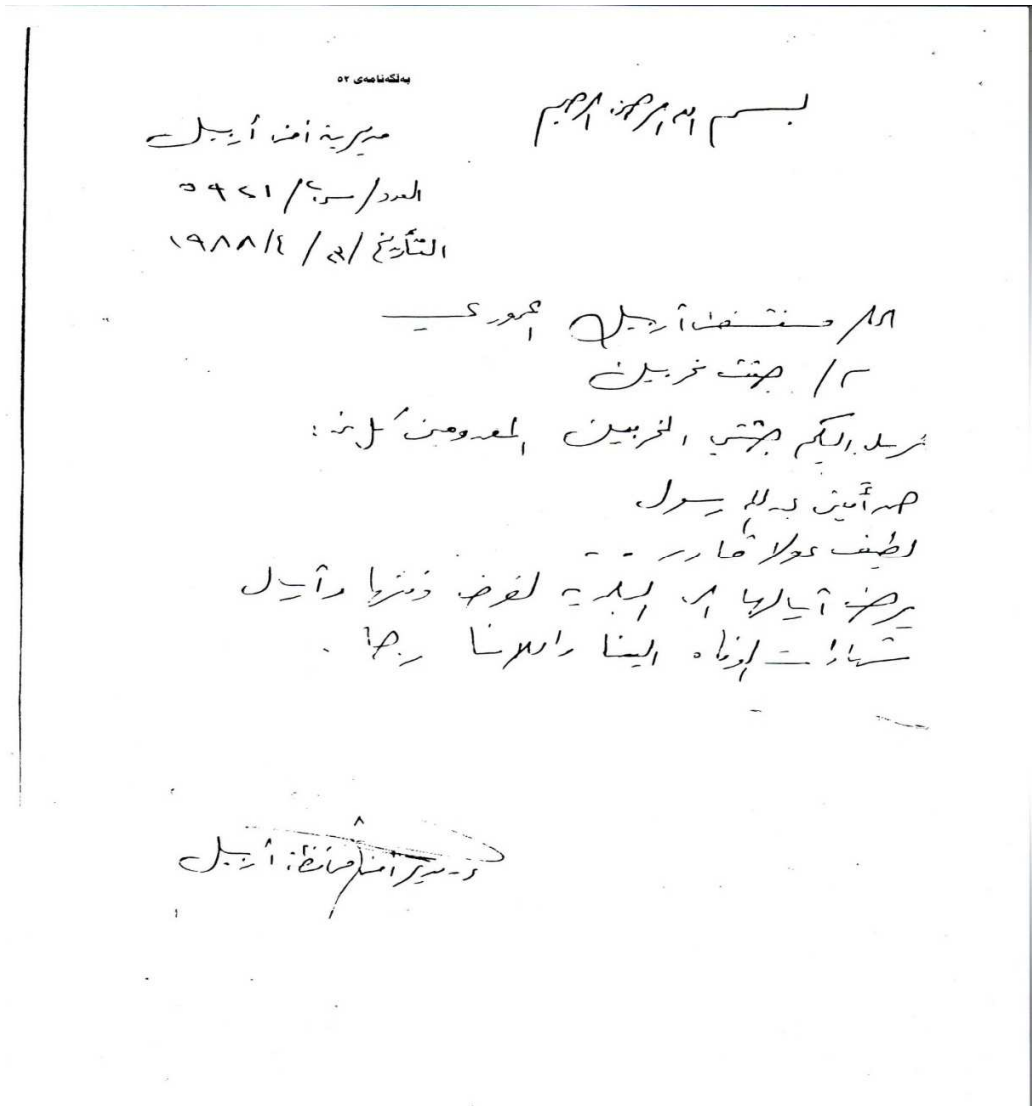 بەلگەنامەی ٥٢
بسم الله الرحمن الرحيم
مديرية أمن أربيل
العدد / س ب / ٥٩٢١
التأريخ / / ٤ / ١٩٨٨
الى / مستشفى أربيل الجمهوري
م / جثث مخربين
نرسل اليكم جثتي المخربين المعدومين كل من :
أمين عبدالله رسول
لطيف مولا قادر - -
يرجى آرسالها الى البلدية لغرض دفنها وآرسال
شهادات الوفاة الينا واعلامنا رجاءً .
مدير أمن محافظة أربيل